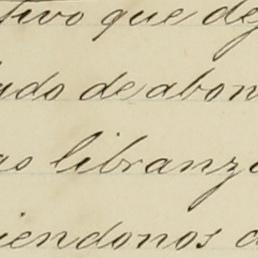 tivo que dej
ado de abon
as libranza
iendonos a